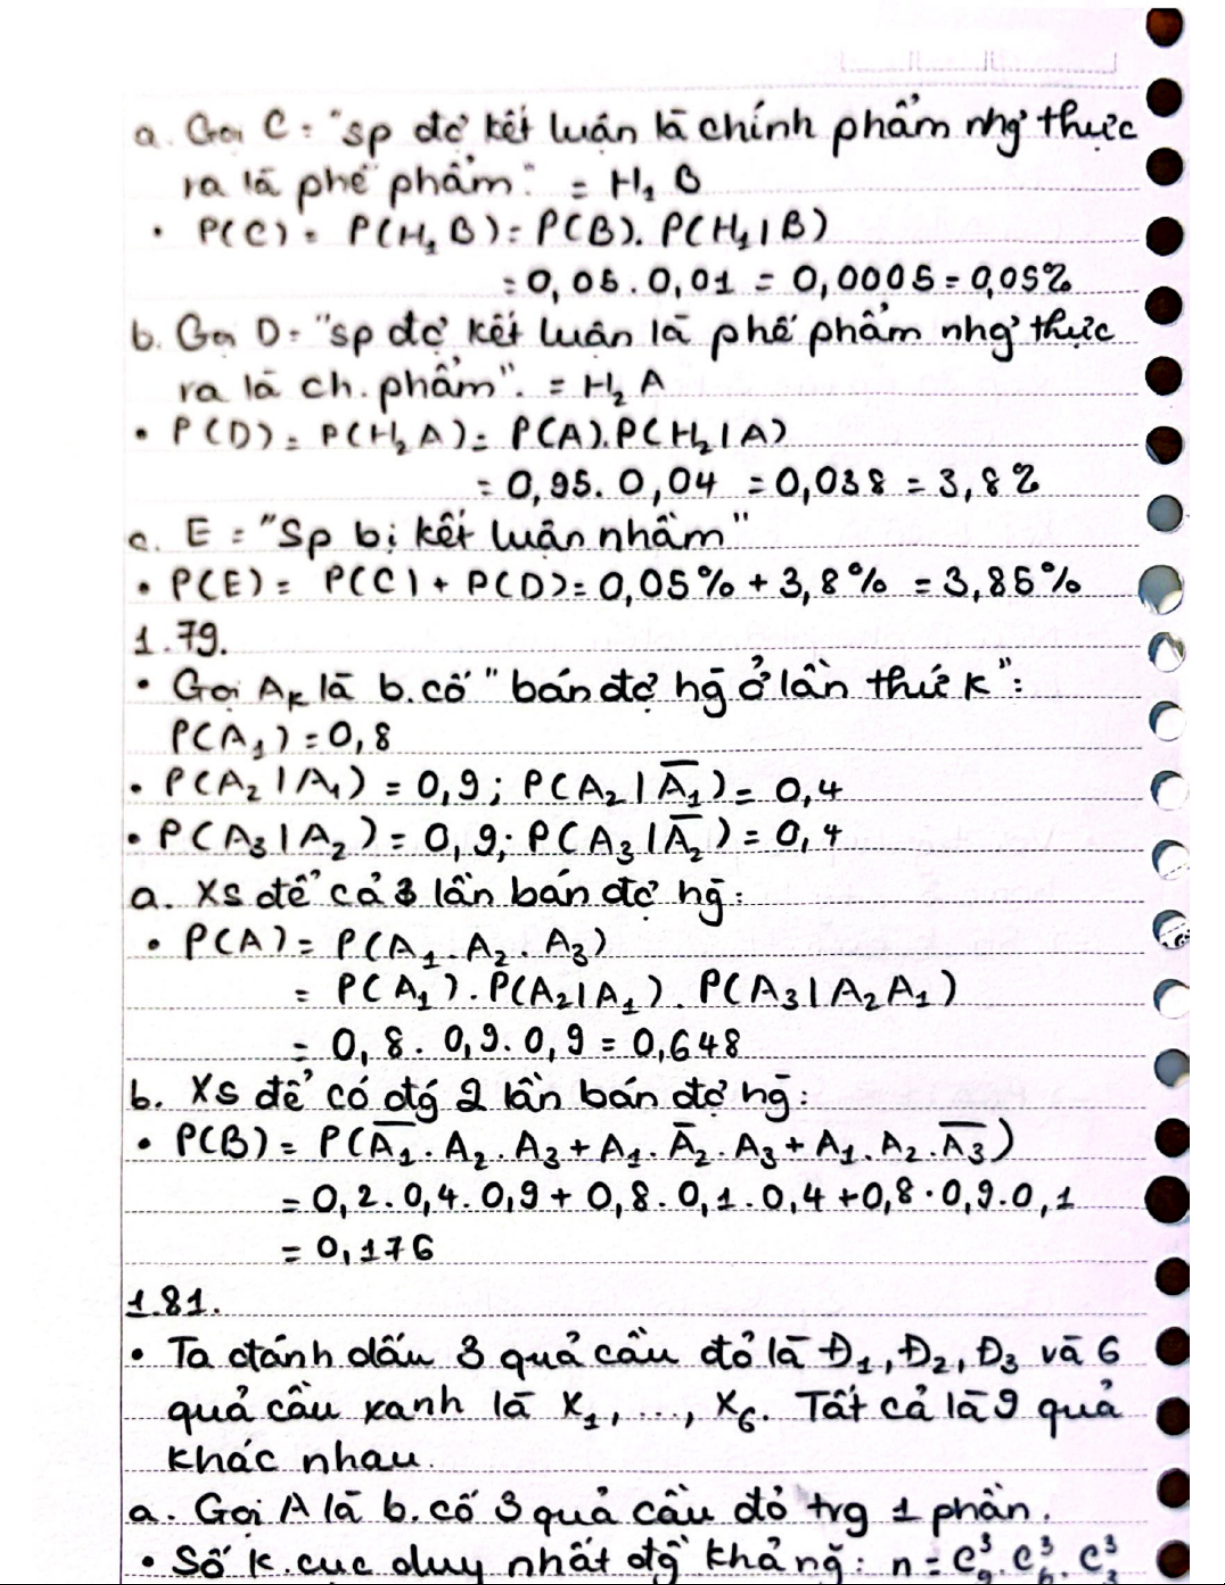 a. Gọi C = "sp đc̉ kết luận là chính phẩm nhg̉ thực
ra là phế phẩm". = H₁ B
• P(C) = P(H₁ B) = P(B). P(H₁ | B)
= 0,05 . 0,01 = 0,0005 = 0,05%
b. Gọi D = "sp đc̉ kết luận là phế phẩm nhg̉ thực
ra là ch. phẩm". = H₂ A
• P(D) = P(H₂ A) = P(A). P(H₂ | A)
= 0,95. 0,04 = 0,038 = 3,8%
c. E = "Sp bị kết luận nhầm"
• P(E) = P(C) + P(D) = 0,05% + 3,8% = 3,85%
1.79.
• Gọi Aₖ là b.cố "bán đc̉ hg̀ ở lần thứ k":
P(A₁) = 0,8
• P(A₂ | A₁) = 0,9; P(A₂ | A̅₁) = 0,4
• P(A₃ | A₂) = 0,9; P(A₃ | A̅₂) = 0,4
a. Xs để cả 3 lần bán đc̉ hg̀:
• P(A) = P(A₁. A₂. A₃)
= P(A₁). P(A₂ | A₁). P(A₃ | A₂ A₁)
= 0,8. 0,9. 0,9 = 0,648
b. Xs để có đǵ 2 lần bán đc̉ hg̀:
• P(B) = P(A̅₁. A₂. A₃ + A₁. A̅₂. A₃ + A₁. A₂. A̅₃)
= 0,2. 0,4. 0,9 + 0,8. 0,1. 0,4 + 0,8. 0,9. 0,1
= 0,176
1.81.
• Ta đánh dấu 3 quả cầu đỏ là Đ₁, Đ₂, Đ₃ và 6
quả cầu xanh là X₁, ..., X₆. Tất cả là 9 quả
khác nhau.
a. Gọi A là b.cố 3 quả cầu đỏ trg 1 phần.
• Số k.cục duy nhất đg̀ khả nğ: n = C₉³. C₆³. C₃³